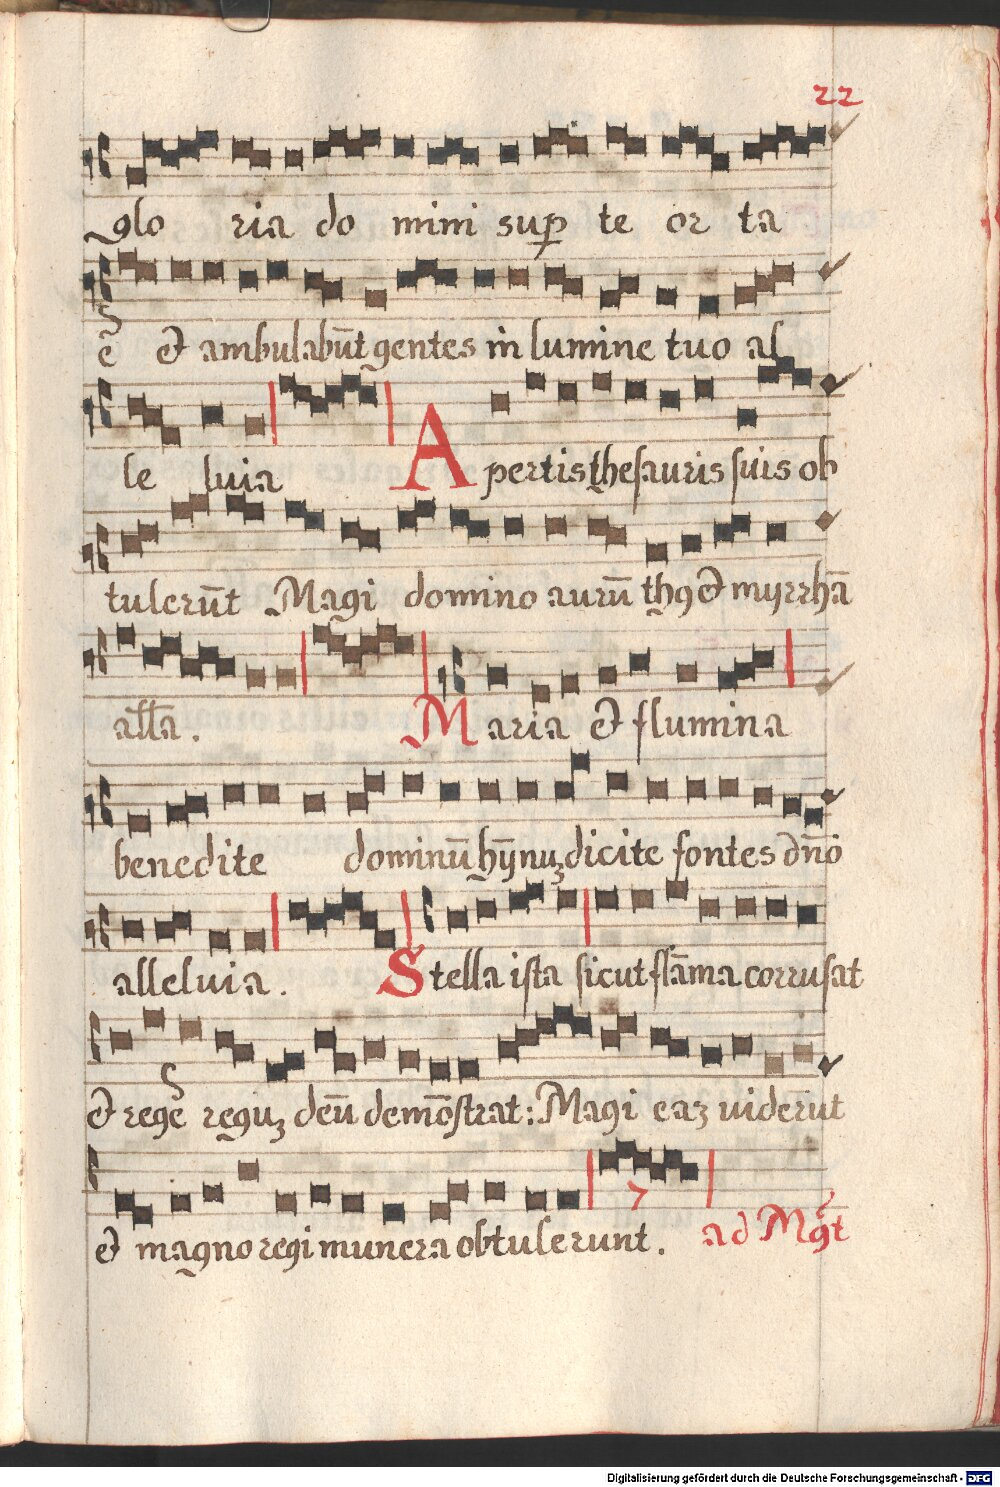 22
glo ria do mini sup te or ta
ē et ambulabūt gentes in lumine tuo al
le luia Apertis thesauris suis ob
tulerūt Magi domino aurū th9 et myrrhā
alla. Maria et flumina
benedite dominū hȳnuʒ dicite fontes dn̄o
alleluia. Stella ista sicut flāma corrusat
et rege reguʒ deū demōstrat: Magi eaʒ uiderūt
et magno regi munera obtulerunt. 7 ad Mg̃t
Digitalisierung gefördert durch die Deutsche Forschungsgemeinschaft - DFG